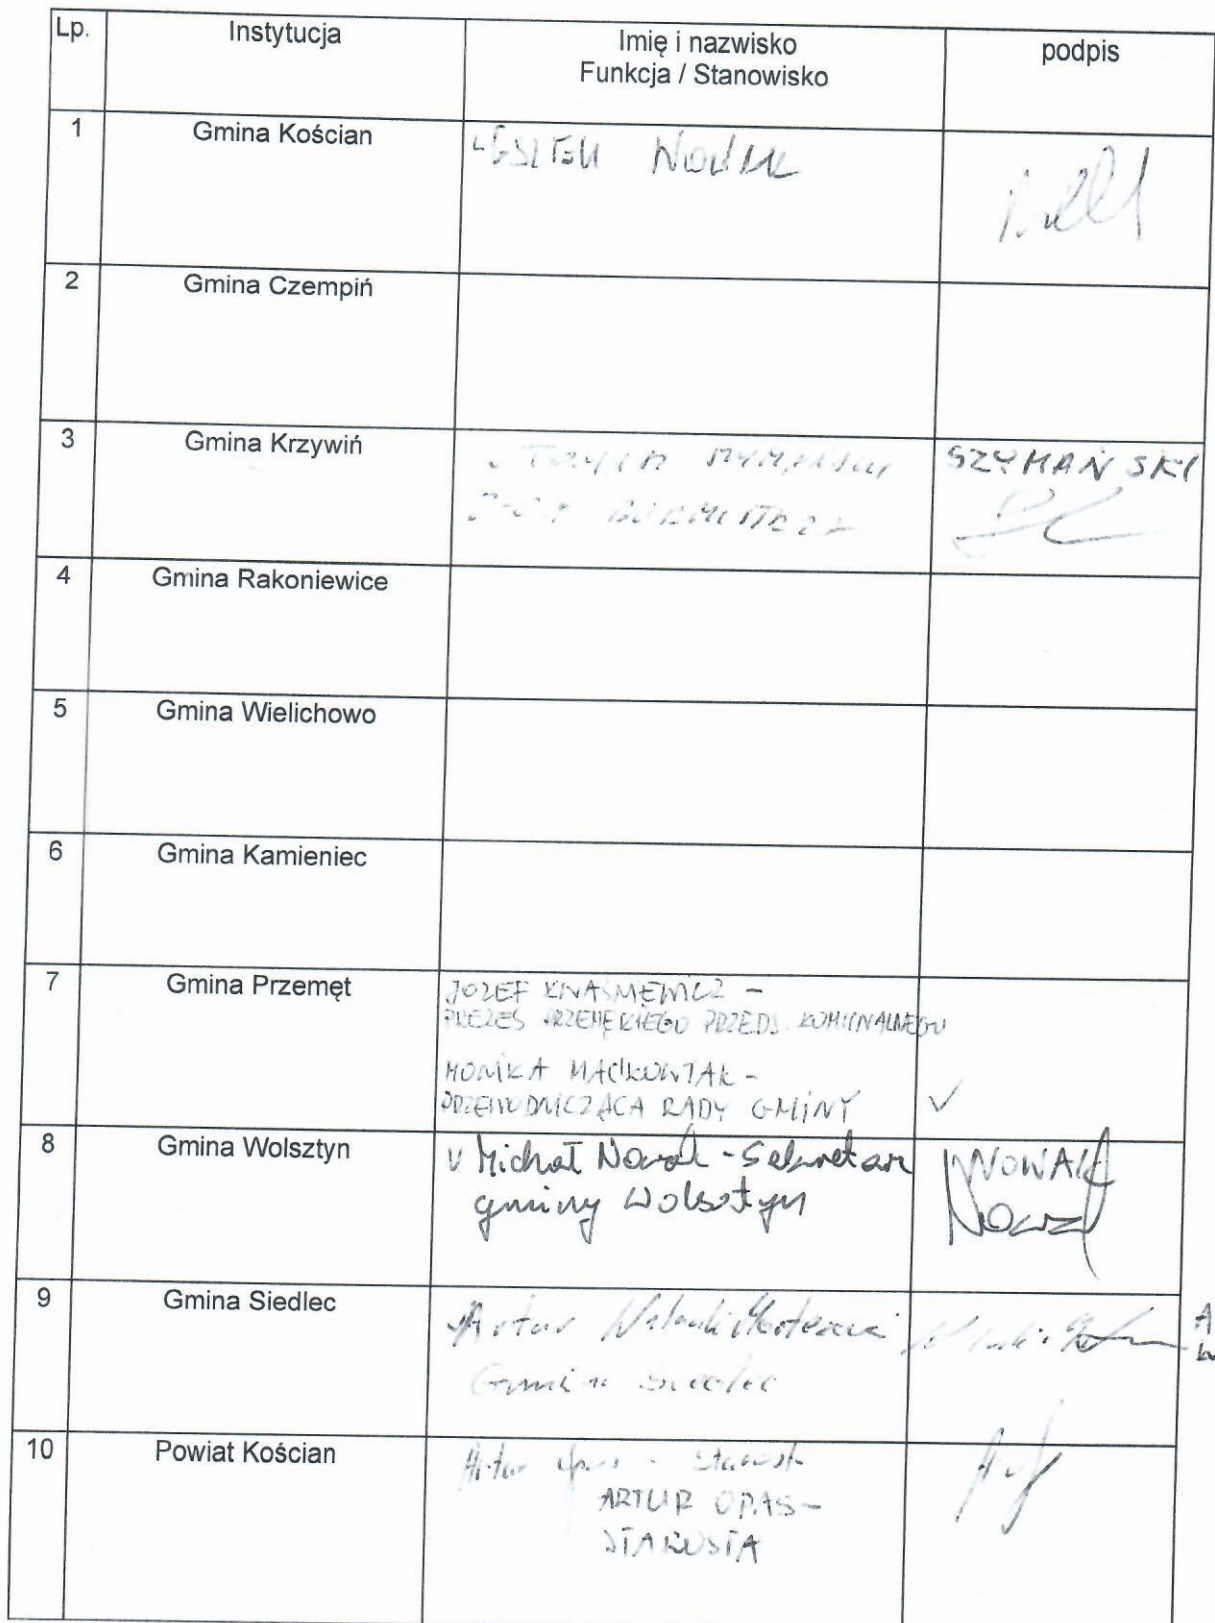 Lp. Instytucja Imię i nazwisko podpis
Funkcja / Stanowisko
1 Gmina Kościan LESZEK NOWAK
2 Gmina Czempiń
3 Gmina Krzywiń SZYMAŃSKI
BURMISTRZ
4 Gmina Rakoniewice
5 Gmina Wielichowo
6 Gmina Kamieniec
7 Gmina Przemęt JOZEF –
PREZES PRZEMĘCKIEGO PRZEDS. KOMUNALNEGO
MONIKA MAĆKOWIAK –
PRZEWODNICZĄCA RADY GMINY V
8 Gmina Wolsztyn v Michał Nowak - Sekretarz NOWAK
gminy Wolsztyn Nowak
9 Gmina Siedlec Artur
Gmina Siedlec
10 Powiat Kościan Artur Opas - Starosta
ARTUR OPAS –
STAROSTA